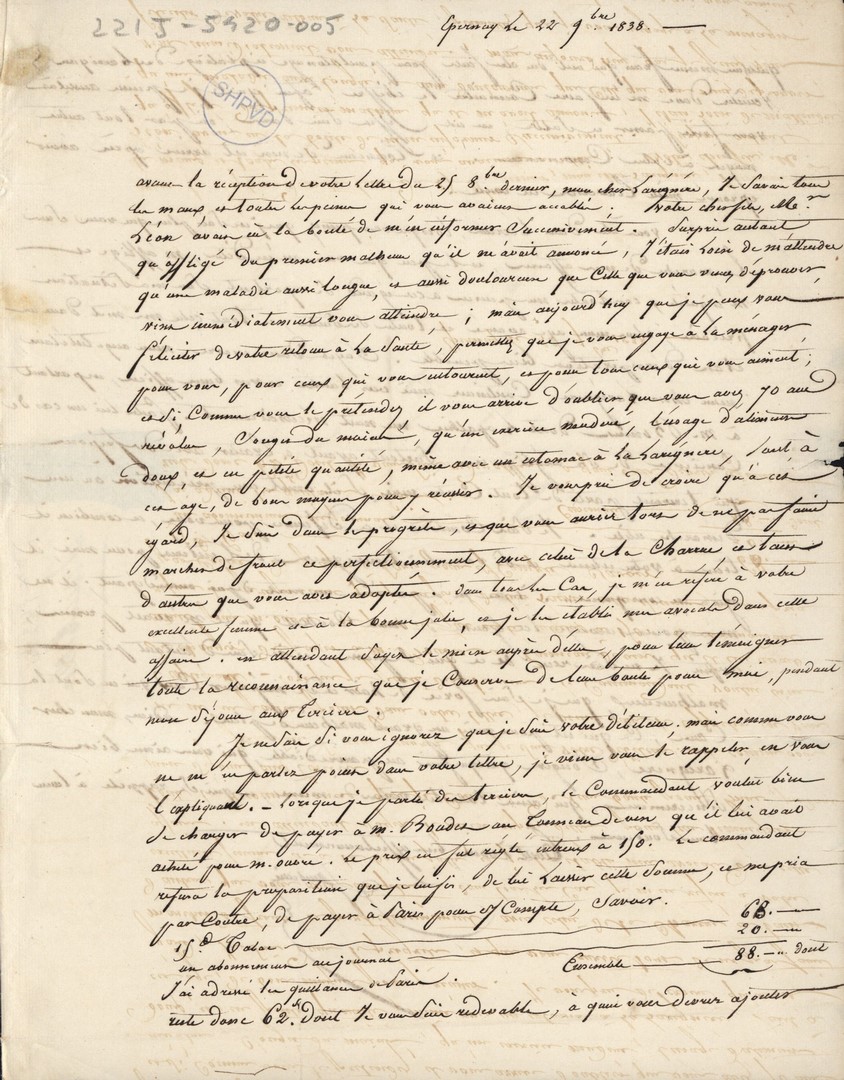 221J-5420-005
Epernay Le 22 9.bre 1838.
SHPVD
avant la réception de votre Lettre du 25 8.bre dernier, mon cher Larigné, Je savais tous
les maux, et toutes les peines qui vous avaient accablé. Votre cher fils, Mr
Léon avait eü la bonté de m'en informer Successivement. Surpris autant
qu'affligé du premier malheur qu'il m'avait annoncé, J'étais Loin de m'attendre
qu'une maladie aussi longue, et aussi douloureuse que Celle que vous venez d'éprouver,
vint immédiatement vous atteindre ; mais aujourd'huy que je peux vous
féliciter de votre retour à La Santé, permettez que je vous engage à La ménager
pour vous, pour ceux qui vous entourent, et pour tous ceux qui vous aiment ;
et Si Comme vous le prétendez il vous arrive d'oublier que vous avez 70 ans
révolus, Songez du moins, qu'un exercice modéré, l'usage d'alimens
doux, et en petite quantité, même avec un estomac à La Larigné, Sont à
cet age, de bons moyens pour y réussir. Je vous prie de croire qu'à cet
égard, Je Suis dans le progrès, et que vous auriez tort de ne pas faire
marcher de front ce perfectionnement, avec celui de la Charrue et tant
d'autres que vous avez adoptés. dans tous les Cas, je m'en réfère à votre
excellente femme et à la bonne julie, et je les établis mes avocats dans cette
affaire. en attendant Soyez le mien auprès d'elles, pour leur témoigner
toute la reconnaissance que je Conserve de leurs bontés pour moi, pendant
mon Séjour aux
Je ne Sais Si vous ignorez que je Suis votre débiteur. mais comme vous
ne m'en parlez point dans votre lettre, je viens vous le rappeler en vous
l'expliquant. - Lorsque je partis des le Commandant voulut bien
Se charger de payer à M. un Tonneau de vin qu'il lui avait
acheté pour m. Le prix en fut réglé entre eux à 150. Le commandant
refusa la proposition que je lui fis, de lui Laisser cette Somme, et me pria
par Contre, de payer à Paris pour Compte, Savoir.
15.d Tabac 68.
un abonnement au journal 20.
Ensemble 88. dont
J'ai adressé les quittances de Paris.
reste donc 62.f dont Je vous Suis redevable, à quoi vous devrez ajouter